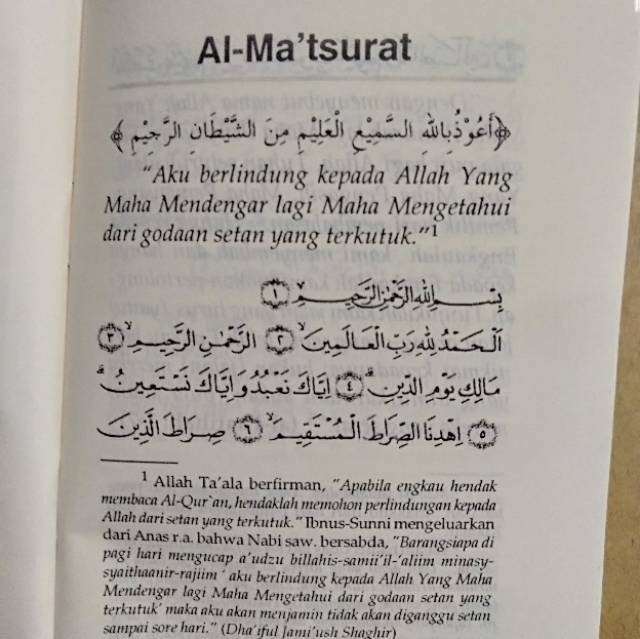 Al-Ma'tsurat
﴿أَعُوْذُ بِاللهِ السَّمِيْعِ الْعَلِيْمِ مِنَ الشَّيْطَانِ الرَّجِيْمِ﴾
"Aku berlindung kepada Allah Yang
Maha Mendengar lagi Maha Mengetahui
dari godaan setan yang terkutuk."¹
بِسْمِ اللهِ الرَّحْمٰنِ الرَّحِيْمِ ١
اَلْحَمْدُ لِلّٰهِ رَبِّ الْعَالَمِيْنَ ٢ الرَّحْمٰنِ الرَّحِيْمِ ٣
مَالِكِ يَوْمِ الدِّيْنِ ٤ اِيَّاكَ نَعْبُدُ وَاِيَّاكَ نَسْتَعِيْنُ
٥ اِهْدِنَا الصِّرَاطَ الْمُسْتَقِيْمَ ٦ صِرَاطَ الَّذِيْنَ
¹ Allah Ta'ala berfirman, "Apabila engkau hendak
membaca Al-Qur`an, hendaklah memohon perlindungan kepada
Allah dari setan yang terkutuk." Ibnus-Sunni mengeluarkan
dari Anas r.a. bahwa Nabi saw. bersabda, "Barangsiapa di
pagi hari mengucap a'udzu billahis-samii'il-'aliim minasy-
syaithaanir-rajiim ' aku berlindung kepada Allah Yang Maha
Mendengar lagi Maha Mengetahui dari godaan setan yang
terkutuk' maka aku akan menjamin tidak akan diganggu setan
sampai sore hari." (Dha'iful Jami'ush Shaghir)